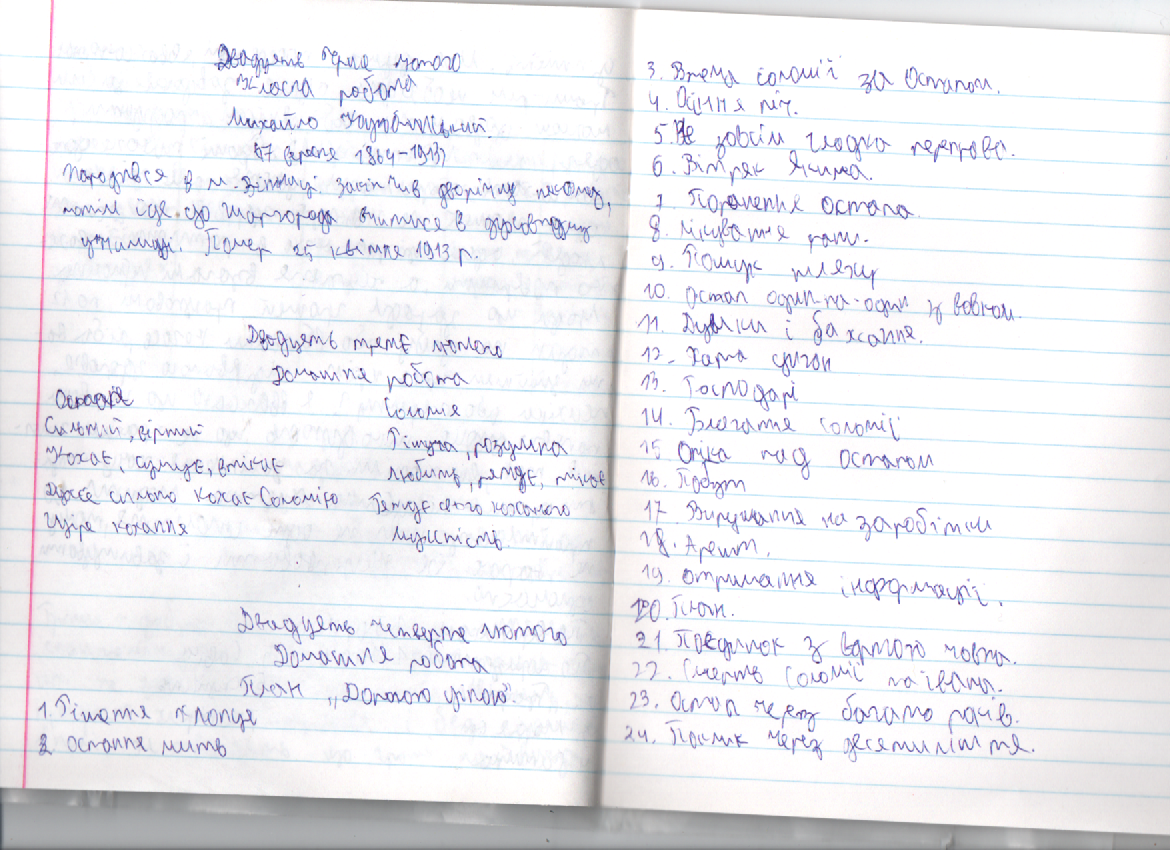 Двадцять лютого
Класна робота
Михайло Коцюбинський.
17 вересня 1864-1913
Народився в м. Вінниці, закінчив дворічну школу,
потім їде до Шаргорода вчитися в духовному
училищі. Помер 25 квітня 1913 р.
Двадцять третє лютого
Домашня робота
Остап
Соломія
Сильний, вірний
Рішуча, розумна
Кохає, сумує, втікає
любить, рятує, лікує
Дуже сильно кохає Соломію
Рятує свого коханого
Щире кохання
Мужність.
Двадцять четверте лютого
Домашня робота
План „Дорогою ціною".
1. Рішення хлопця
2 остання мить
3. Втеча Соломії за Остапом.
4. Осіння ніч.
5. Не зовсім гладка переправа.
6. Вітряк Якима.
7. Поранення Остапа.
8. Лікування рани.
9. Пошук шляху
10. Остап один-на-один з вовком.
11. Думки і бажання.
12. Хата циган
13. Господарі
14. Благання Соломії
15 Опіка над Остапом
16. Побут
17. Вирушання на заробітки
18. Арешт.
19. отримання інформації.
20. План.
21. Поєдинок з вартою човна.
22. Смерть Соломії та Івана.
23. Остап через багато років.
24. Поклик через десятиліття.